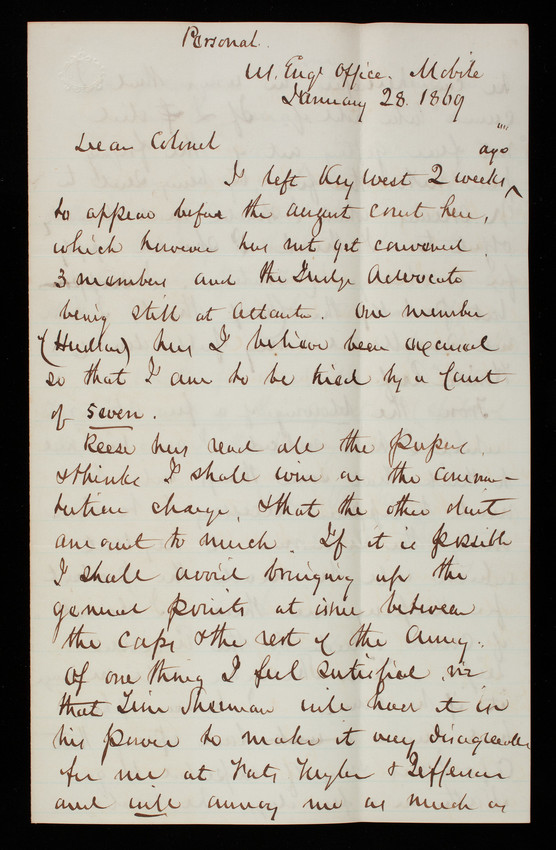 Personal.
U.S. Engr Office. Mobile
January 28. 1869
Dear Colonel
ago
I left Key West 2 weeks ^
to appear before the august court here,
which however has not yet convened.
3 members and the Judge Advocate
being still at Atlanta. One member
() has I believe been excused
so that I am to be tried by a Court
of seven.
Reese has read all the papers
& thinks I shall win on the
charge, & that the other dont
amount to much. If it is possible
I shall avoid bringing up the
general points at issue between
the Corps & the rest of the Army.
Of one thing I feel satisfied, viz
that Sherman will have it in
his power to make it very disagreeable
for me at Forts Taylor & Jefferson
and will annoy me as much as